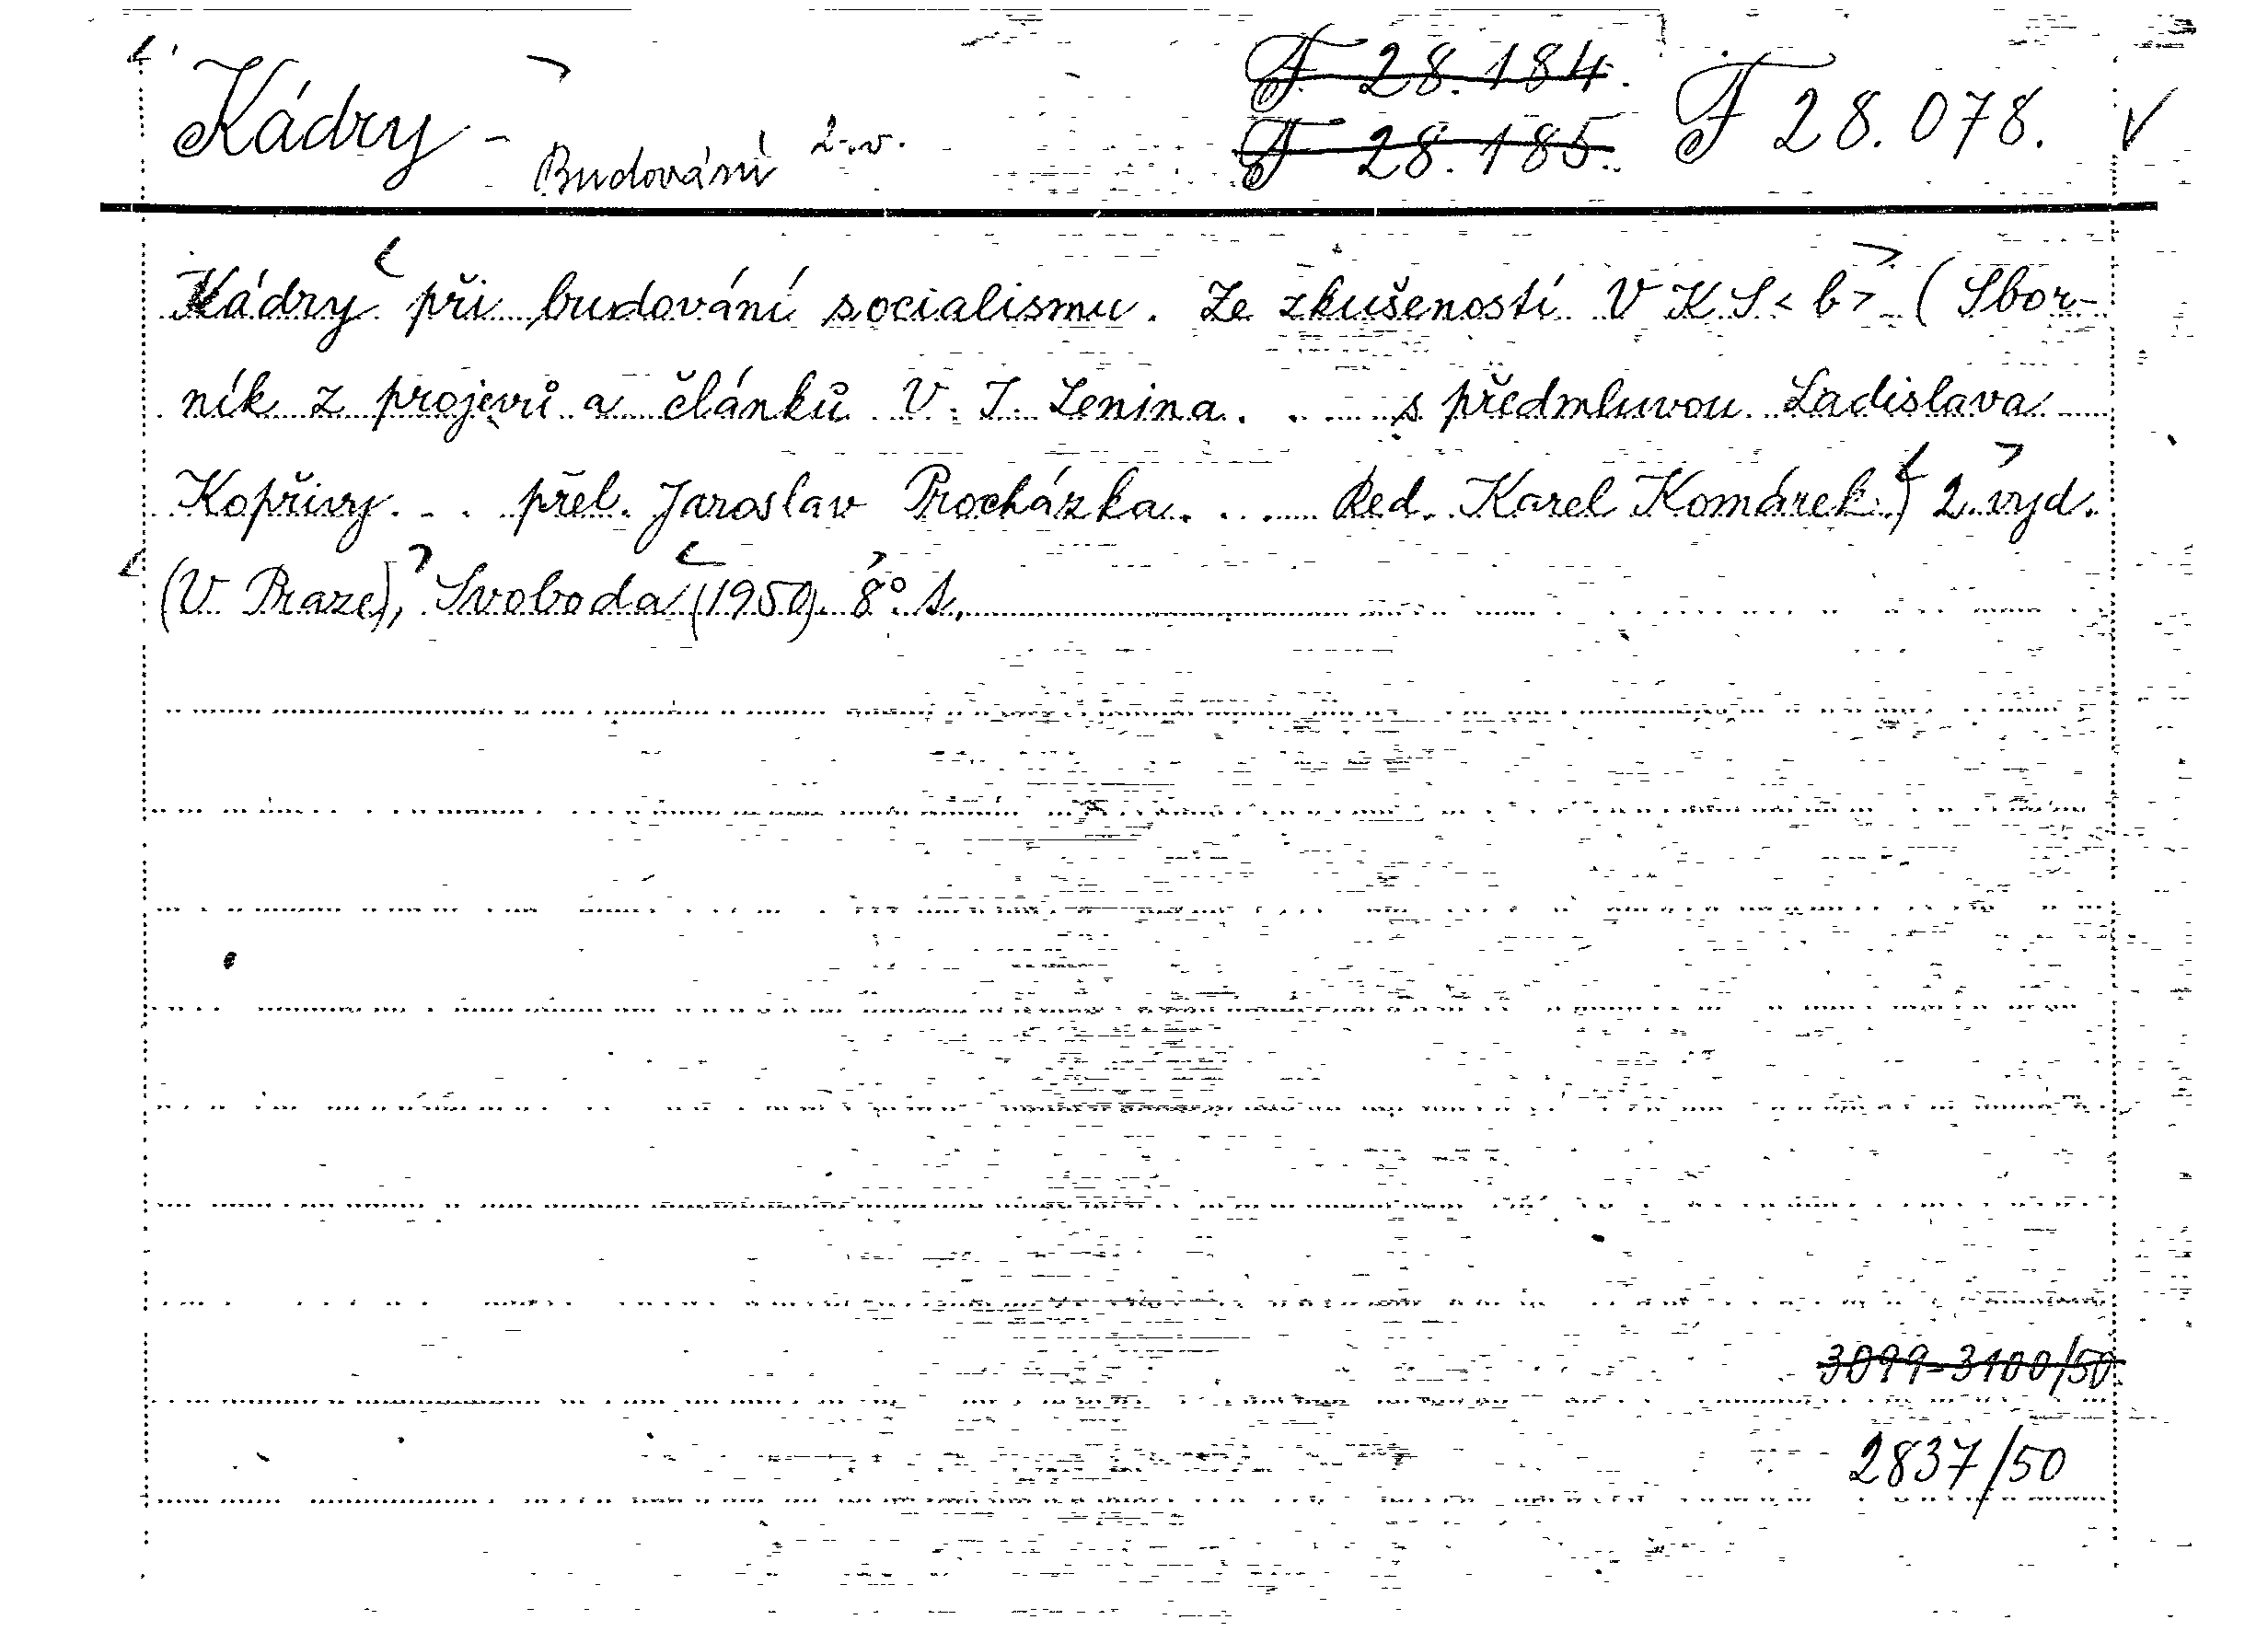 Kádry - Budování 2.v. F 28.184. F 28.078. V
F 28.185.
Kádry při budování socialismu. Ze zkušeností VKS<b> (Sbor-
ník z projevů a článků V. I. Lenina. . . s předmluvou Ladislava
Kopřivy. . . přel. Jaroslav Procházka. . . Red. Karel Komárek.) 2. vyd.
(V Praze), Svoboda (1950). 8°. s.
3099-3100/50
2837/50